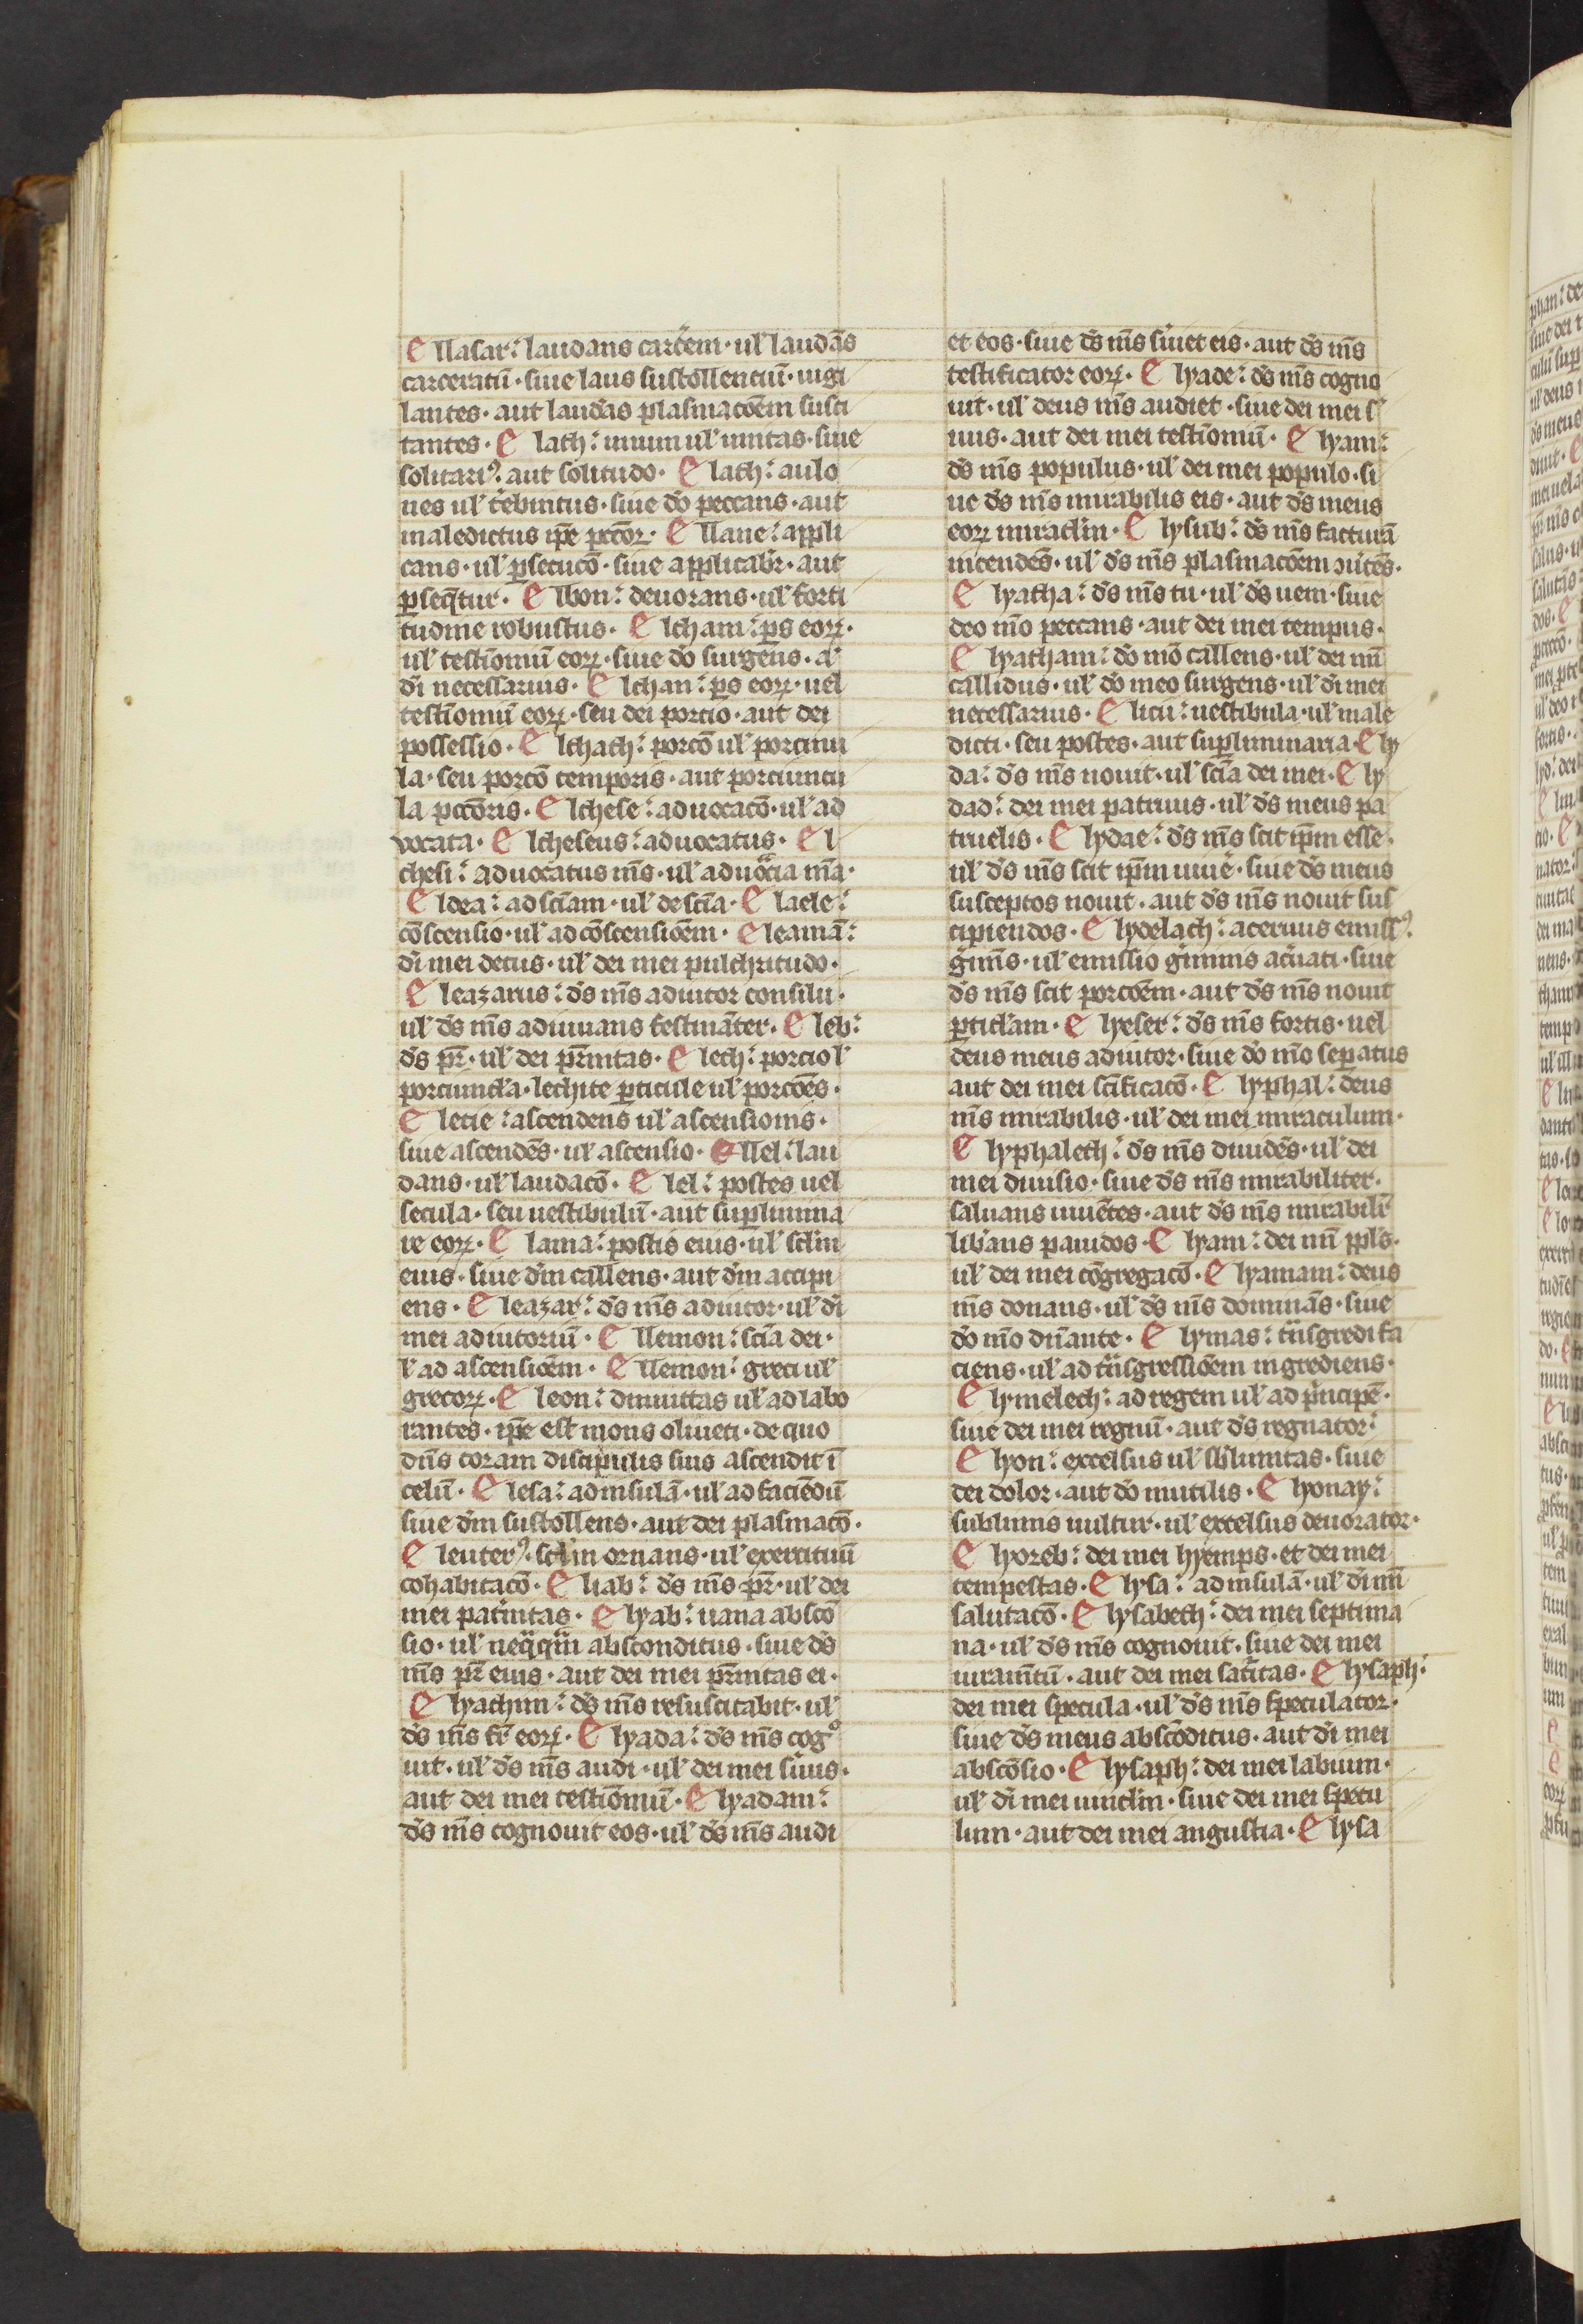 Ellasar: laudans carcem · ul' laudās
carceratū · siue laus sustollentiū · uigi
lantes · aut laudās plasmacōem susci
tantes · Elath: unum ul' unitas · siue
solitari9 aut solitudo · Elath: aulo
nes ul' tebintus · siue dō peccans · aut
maledictus ipē pctōꝝ · Ellane: appli
cans · ul' ꝑsecucō · siue applicabr̄ · aut
ꝑseqͥtur · Ellbon: deuorans · ul' forti
tudine robustus · Elcham: ꝑs eoꝝ ·
ul' testīoniū eoꝝ · siue dō surgens · a'
dī necessarius · Elchan: ꝑs eoꝝ · uel
testīoniū eoꝝ · seu dei portio · aut dei
possessio · Elchath: porcō ul' porciuu
la · seu porcō temporis · aut porciuncu
la pctōris · Elchese: aduocacō · ul' ad
uocata · Elcheseus: aduocatus · El
chesi: aduocatus ms̄ · ul' aduocͣia mā ·
Eldea: ad sciam · ul' de scīa · Elaele:
cōscensio · ul' ad cōscensiōem · Eleamā:
dī mei decus · ul' dei mei pulchritudo ·
Eleazarus: ds̄ ms̄ adiutor consilii ·
ul' ds̄ ms̄ adiuuans festinant̄er · Eleb:
ds̄ pr̄ · ul' dei pr̄nitas · Elech: porcio l'
porciuncl'a · lechite ꝑticule ul' porcōes ·
Elecie: ascendens ul' ascensionis ·
siue ascendēs · ul' ascensio · Ellel: lau
dans · ul' laudacō · Elel: postes uel
secula · seu uestibulū · aut suꝑlimina
re eoꝝ · Elama: postis eius · ul' scl'm
eius · siue dm̄ callens · aut dm̄ accipi
ens · Eleazar: ds̄ ms̄ adiutor · ul' dī
mei adiutoriū · Ellemon: scīa dei ·
l' ad ascensiōem · Ellemon: greci ul'
grecoꝝ · Eleon: diminittas ul' ad labo
rantes · ipē est mons oliueti · de quo
dn̄s coram discipulis suis ascendit ī
celū · Elesa: ad insulā · ul' ad faciēdū
siue dm̄ sustollens · aut dei plasmacō ·
Eleuter9: scl'm ornans · ul' exercituū
cohabitacō · Eliab: ds̄ ms̄ pr̄ · ul' dei
mei pat̄nitas · Elyab: uana abscō
sio · ul' neqͣqͣm absconditus · siue ds̄
ms̄ pr̄ eius · aut dei mei pr̄nitas ei ·
Elyachim: ds̄ ms̄ resuscitabit · ul'
ds̄ ms̄ fr̄ eoꝝ · Elyada: ds̄ ms̄ cogͦ
uit · ul' ds̄ ms̄ audi · ul' dei mei s̄uus ·
aut dei mei testīoniū · Elyadam:
ds̄ ms̄ cognouit eos · ul' ds̄ ms̄ audi
et eos · siue ds̄ ms̄ s̄uiet eis · aut ds̄ ms̄
testificator eoꝝ · Elyade: ds̄ ms̄ cogno
uit · ul' deus ms̄ audiet · siue dei mei s'
uus · aut dei mei testīoniū · Elyam:
ds̄ ms̄ populus · ul' dei mei populo · si
ue ds̄ ms̄ mirabilis eis · aut ds̄ meus
eoꝝ miracl'm · Elysub: ds̄ ms̄ facturā
intendēs · ul' ds̄ ms̄ plasmacōem ɔu'tēs ·
Elyatha: ds̄ ms̄ tu · ul' ds̄ uem · siue
deo mō peccans · aut dei mei tempus ·
Elyatham: dō mō callens · ul' dei mī
callidus · ul' dō meo surgens · ul' dī mei
necessarius · Elicu: uestibula · ul' male
dicti · seu postes · aut supliminaria · Ely
da: ds̄ ms̄ nouit · ul' scīa dei mei · Ely
dad: dei mei patruus · ul' ds̄ meus pa
truelis · Elydae: ds̄ ms̄ scit ipm̄ esse ·
ul' ds̄ ms̄ scit ipm̄ uiue' · siue ds̄ meus
susceptos nouit · aut ds̄ ms̄ nouit sus
cipiendos · Elydelach: aceruus emiss9
gͥminis · ul' emissio gͥminis acuati · siue
ds̄ ms̄ scit porcōem · aut ds̄ ms̄ nouit
ꝑticl'am · Elyeser: ds̄ ms̄ fortis · uel
deus meus adiutor · siue dō mō seꝑatus
aut dei mei scīficacō · Elyphal: deus
ms̄ mirabilis · ul' dei mei miraculum ·
Elyphalech: ds̄ ms̄ diuidēs · ul' dei
mei diuisio · siue ds̄ ms̄ mirabiliter ·
saluans uiuētes · aut ds̄ ms̄ mirabilr̄
lib'ans pauidos · Elyam: dei mī ppl's ·
ul' dei mei cōgregacō · Elyamam: deus
ms̄ donans · ul' ds̄ ms̄ dominās · siue
dō mō dn̄ante · Elymas: tͣnsgredi fa
ciens · ul' ad tͣnsgressiōem ingrediens ·
Elymelech: ad regem ul' ad pͥncipē ·
siue dei mei regnū · aut ds̄ regnator:
Elyon: excelsus ul' sb'limitas · siue
dei dolor · aut dō inutilis · Elyonay:
sublimis uultur · ul' excelsus deuorator ·
Elyoreb: dei mei hyemps · et dei mei
tempestas · Elysa: ad insulā · ul' dī mī
salutacō · Elysabeth: dei mei septima
na · ul' ds̄ ms̄ cognouit · siue dei mei
iuram̄tū · aut dei mei sat'itas · Elysaph:
dei mei specula · ul' ds̄ ms̄ speculator ·
siue ds̄ meus abscōditus · aut dī mei
abscōsio · Elysaph: dei mei labium ·
ul' dī mei uincl'm · siue dei mei specu
lum · aut dei mei angustia · Elysa